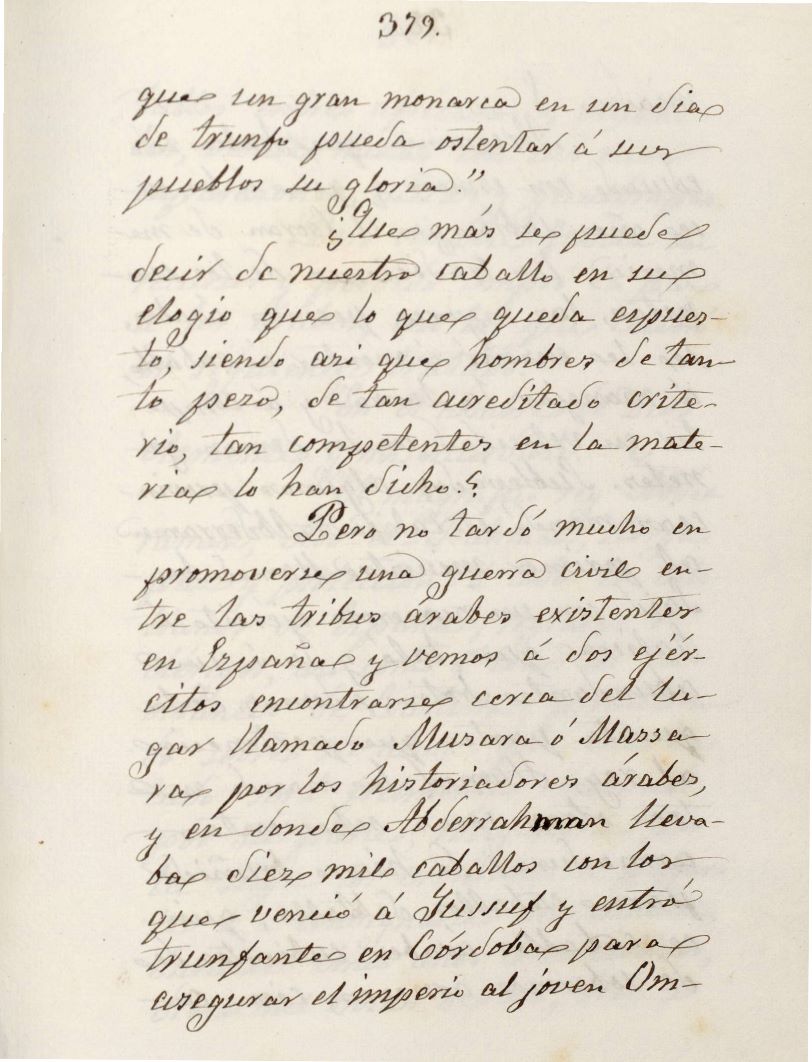 379.
que un gran monarca en un dia
de trunfo pueda ostentar á sus
pueblos su gloria."
¿Que más se puede
decir de nuestro caballo en su
elogio que lo que queda espues-
to, siendo asi que hombres de tan-
to peso, de tan acreditado crite-
rio, tan competentes en la mate-
ria lo han dicho.?
Pero no tardó mucho en
promoverse una guerra civil en-
tre las tribus árabes existentes
en España y vemos á dos ejér-
citos encontrarse cerca del lu-
gar llamado Musara ó Massa-
ra por los historiadores árabes,
y en donde Abderrahman lleva-
ba diez mil caballos con los
que venció á Jussuf y entró
trunfante en Córdoba para
asegurar el imperio al joven Om-